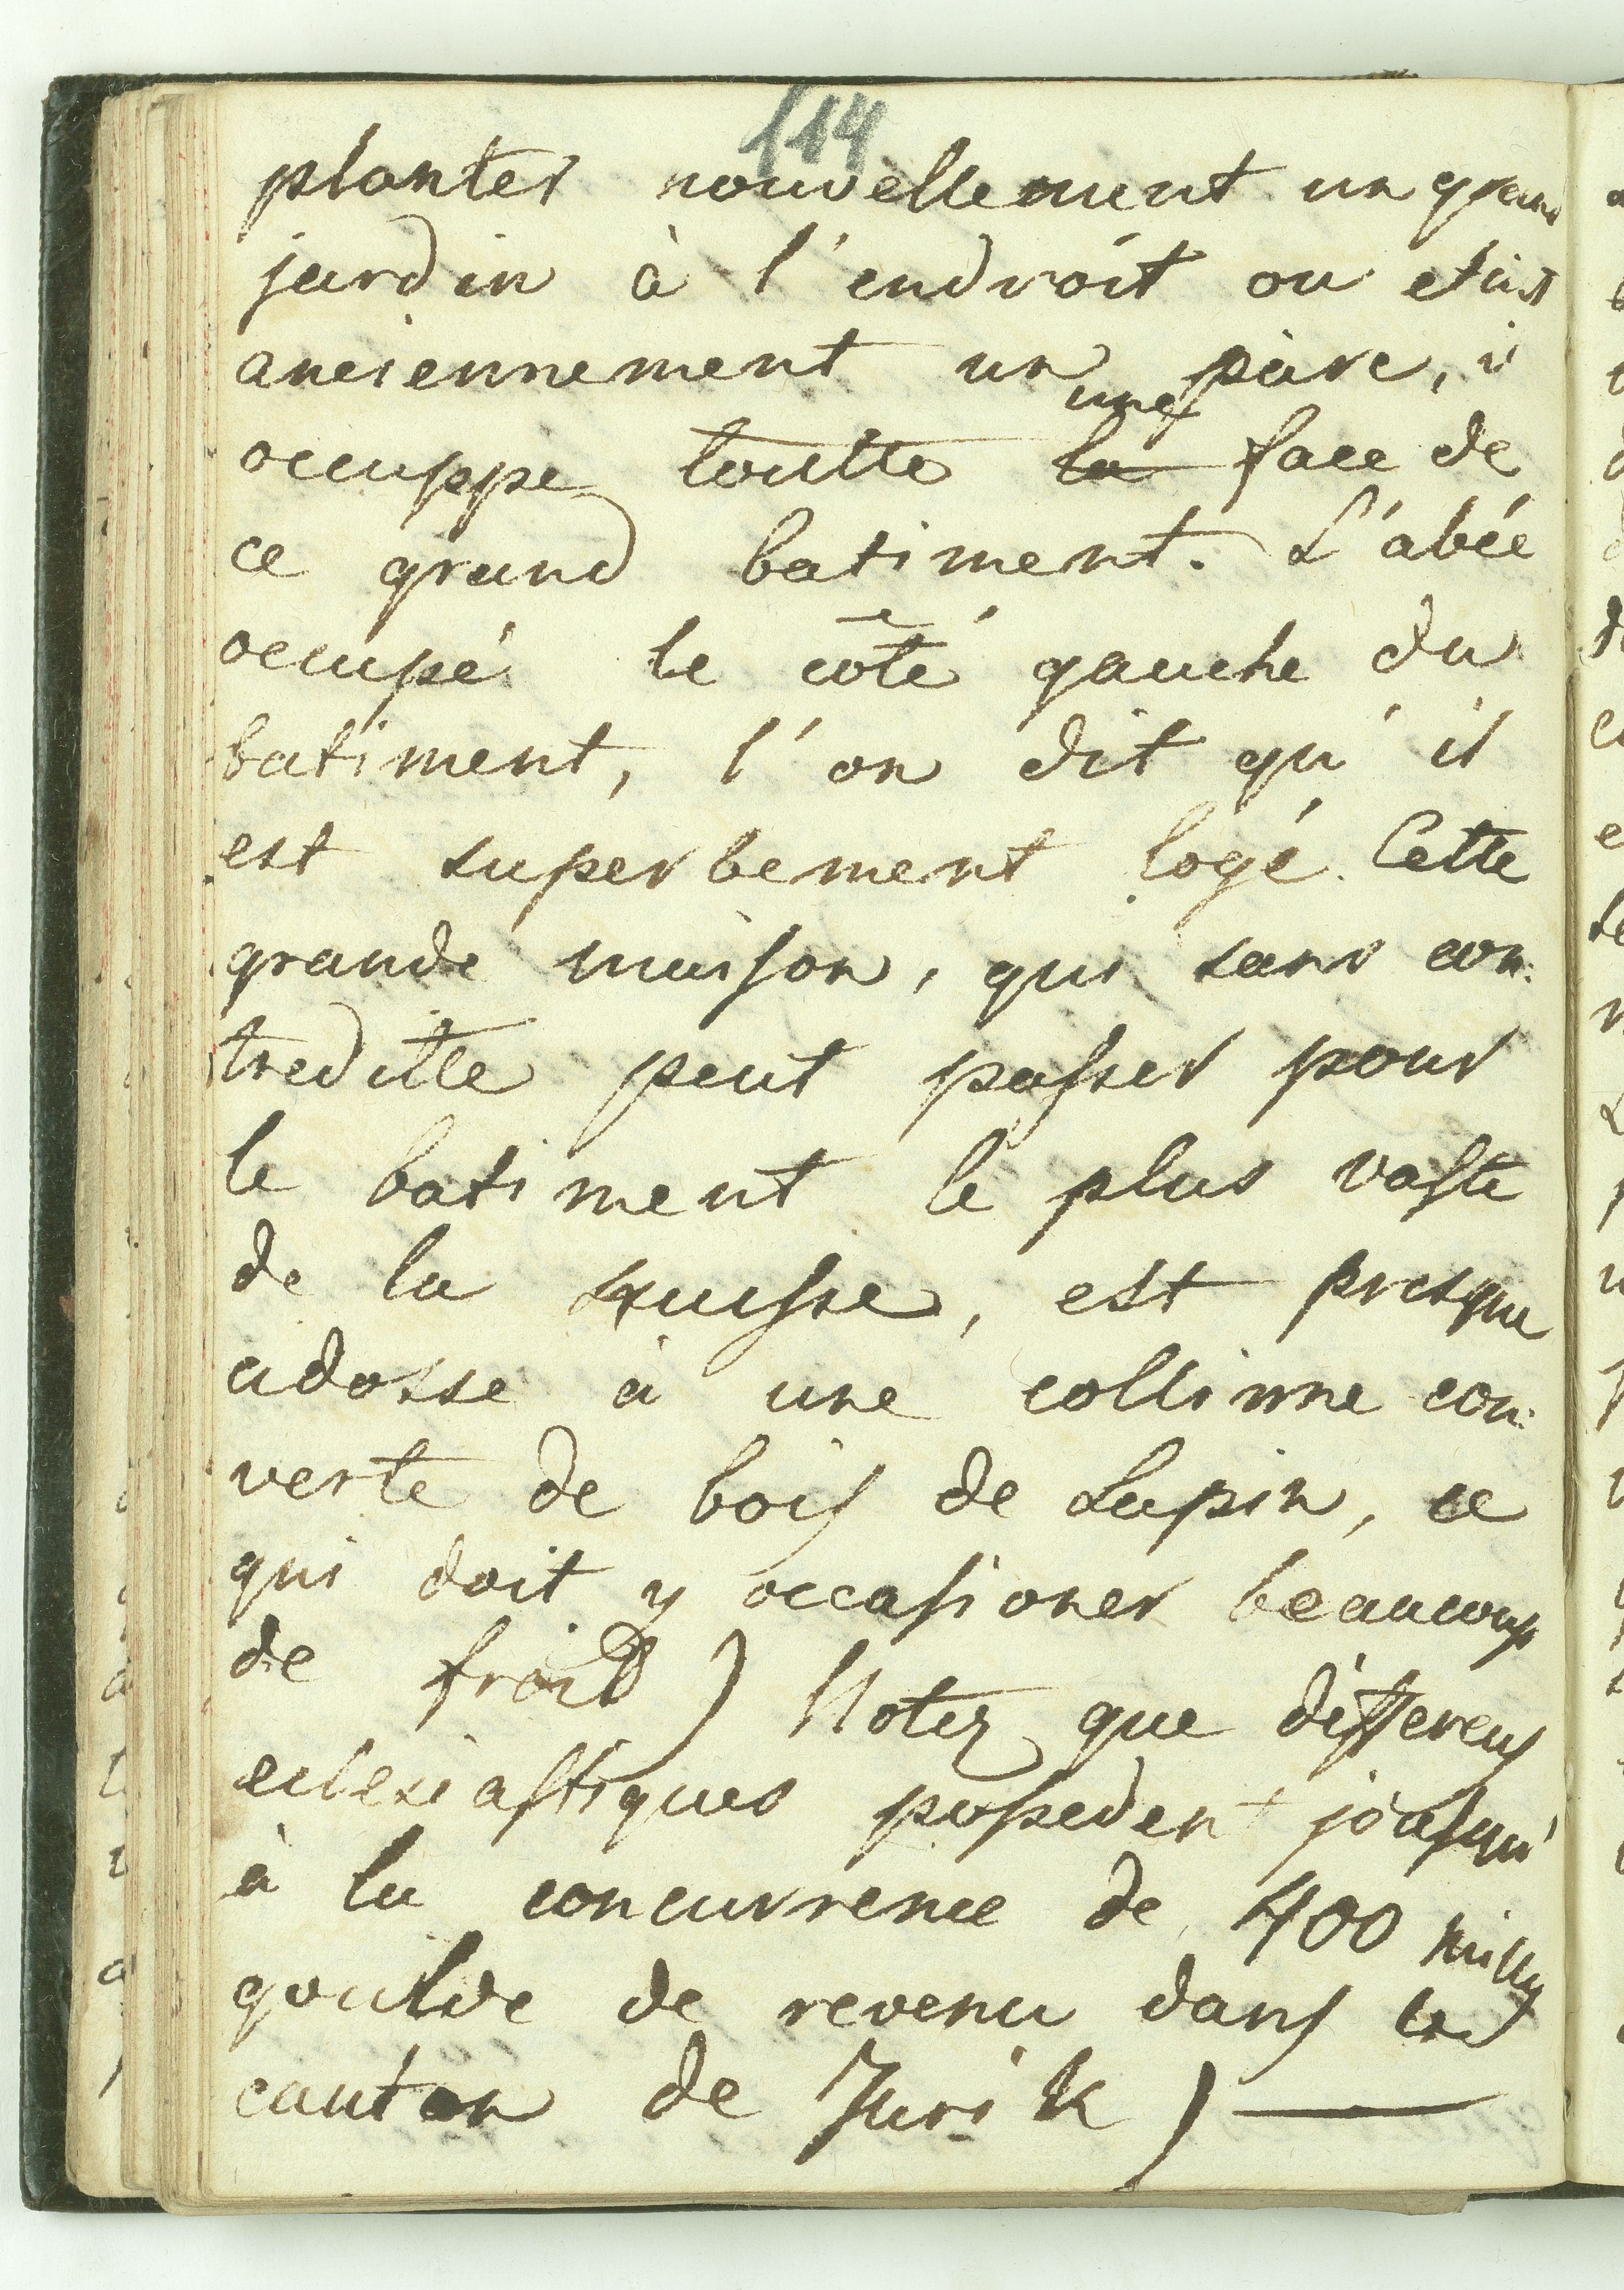 114
planter nouvellement un grand
jardin à l'endroit ou etait
anciennement un parc, il
une
occuppe toutte la face de
ce grand batiment. L'abée
ocupé le côté gauche du
batiment, l'on dit qu'il
est superbement logé. Cette
grande maison, qui sans con:
treditte peut passer pour
le batiment le plus vaste
de la Suisse, est presque
adosse à une collinne cou:
verte de bois de Sapin, ce
qui doit y occasioner beaucoup
de froid) Notez que differens
eclesiastiques possedent jusqu'
à la concurrence de 400 mille
goulde de revenu dans le
canton de Zurik) —